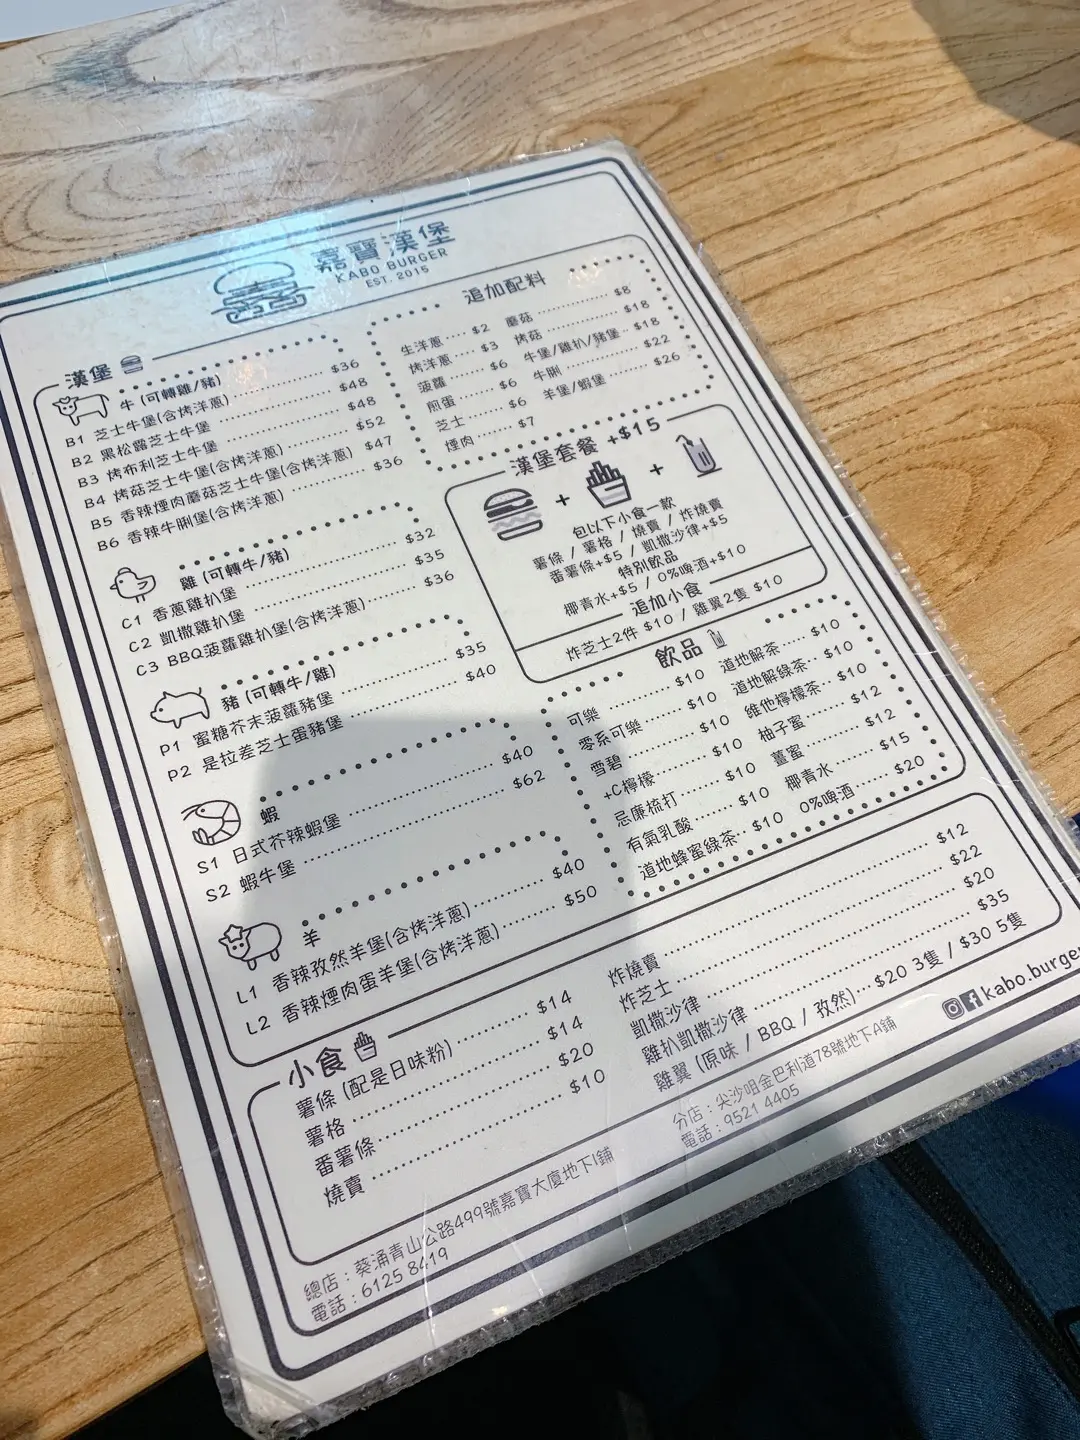 嘉寶漢堡
KABO BURGER
EST. 2015
漢堡
牛 (可轉雞/豬)
B1 芝士牛堡(含烤洋蔥) $36
B2 黑松露芝士牛堡 $48
B3 烤布利芝士牛堡 $48
B4 烤菇芝士牛堡(含烤洋蔥) $52
B5 香辣煙肉蘑菇芝士牛堡(含烤洋蔥) $47
B6 香辣牛脷堡(含烤洋蔥) $36
雞 (可轉牛/豬)
C1 香蔥雞扒堡 $32
C2 凱撒雞扒堡 $35
C3 BBQ菠蘿雞扒堡(含烤洋蔥) $36
豬 (可轉牛/雞)
P1 蜜糖芥末菠蘿豬堡 $35
P2 是拉差芝士蛋豬堡 $40
蝦
S1 日式芥辣蝦堡 $40
S2 蝦牛堡 $62
羊
L1 香辣孜然羊堡(含烤洋蔥) $40
L2 香辣煙肉蛋羊堡(含烤洋蔥) $50
追加配料
生洋蔥 $2
烤洋蔥 $3
菠蘿 $6
煎蛋 $6
芝士 $6
煙肉 $7
蘑菇 $8
烤菇 $18
牛堡/雞扒/豬堡 $18
牛脷 $22
羊堡/蝦堡 $26
漢堡套餐 +$15
+ +
包以下小食一款
薯條 / 薯格 / 燒賣 / 炸燒賣
番薯條+$5 / 凱撒沙律+$5
特別飲品
椰青水+$5 / 0%啤酒+$10
追加小食
炸芝士2件 $10 / 雞翼2隻 $10
飲品
可樂 $10
零系可樂 $10
雪碧 $10
+C檸檬 $10
忌廉梳打 $10
有氣乳酸 $10
道地蜂蜜綠茶 $10
道地解茶 $10
道地解綠茶 $10
維他檸檬茶 $10
柚子蜜 $12
薑蜜 $12
椰青水 $15
0%啤酒 $20
小食
薯條 (配是日味粉) $14
薯格 $14
番薯條 $20
燒賣 $10
炸燒賣 $12
炸芝士 $22
凱撒沙律 $20
雞扒凱撒沙律 $35
雞翼 (原味 / BBQ / 孜然) $20 3隻 / $30 5隻
kabo.burge
總店：葵涌青山公路499號嘉寶大廈地下I鋪
電話：6125 8419
分店：尖沙咀金巴利道78號地下A鋪
電話：9521 4405